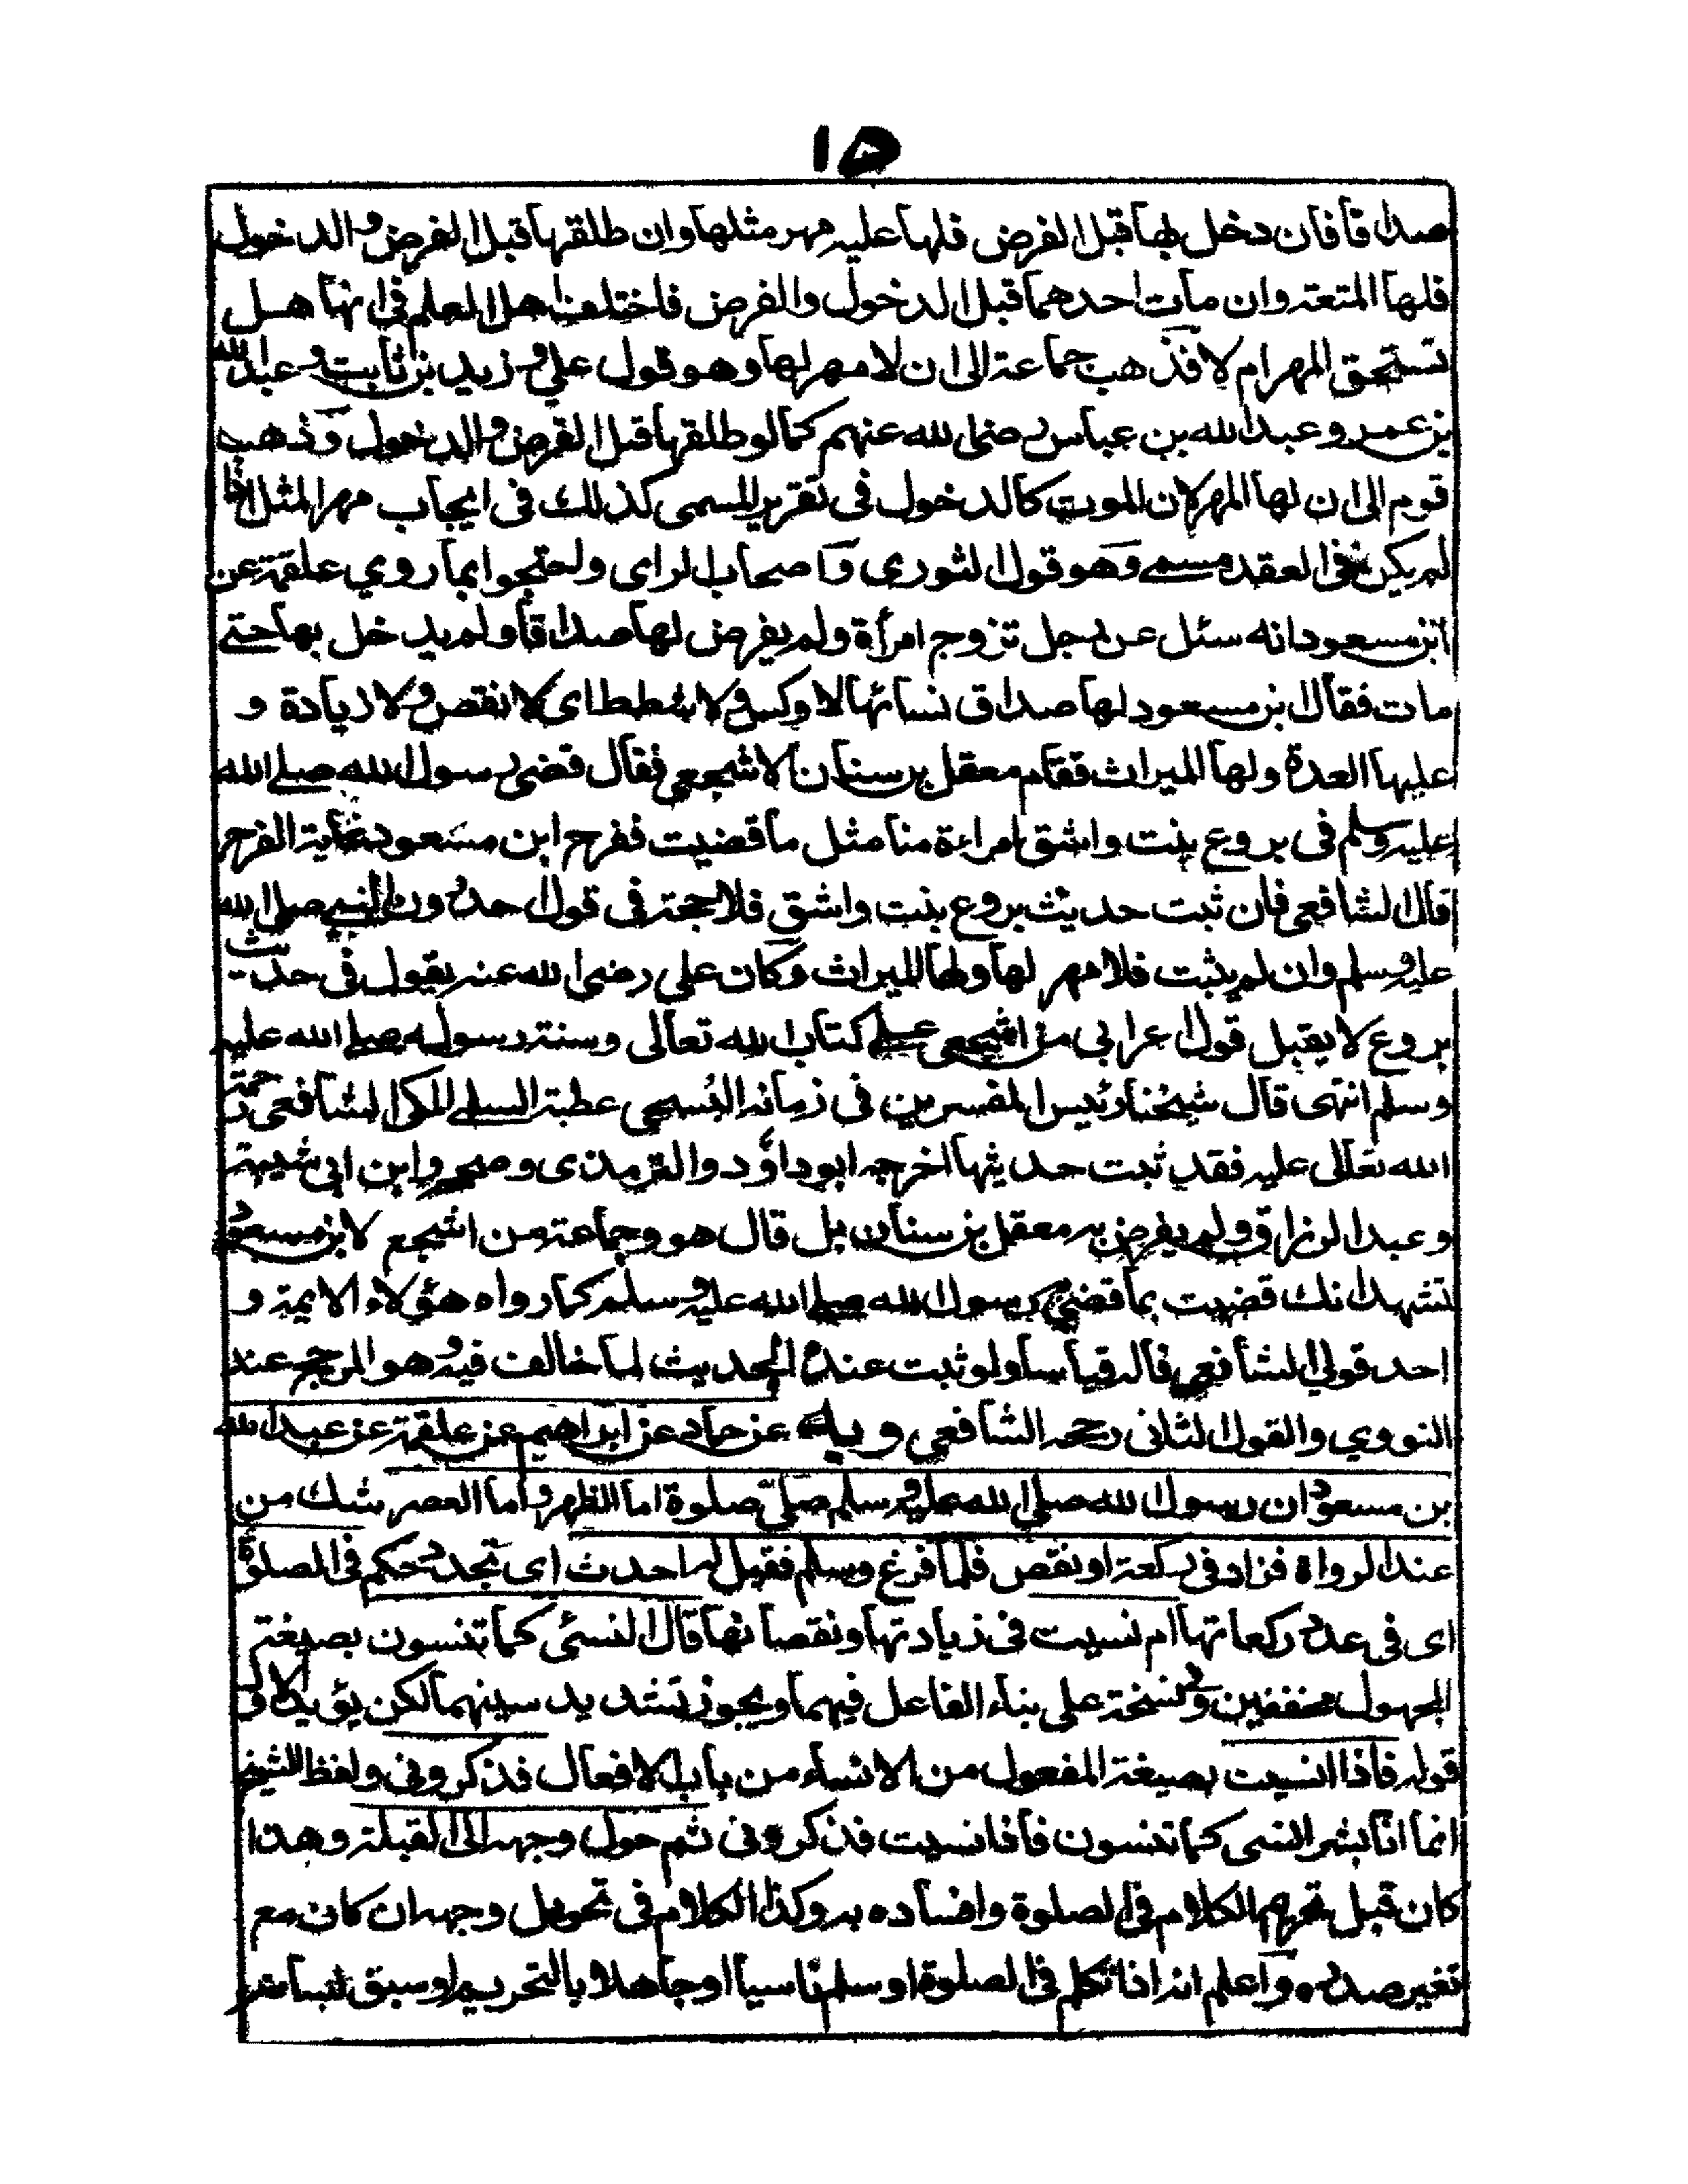 ١٥
صداقا فان دخل بها قبل الفرض فلها عليه مهر مثلها وان طلقها قبل الفرض والدخول
فلها المتعة وان مات احدهما قبل الدخول والفرض فاختلف اهل العلم فى انها هل
تستحق المهر ام لا فذهب جماعة الى ان لا مهر لها وهو قول على وزيد بن ثابت وعبد الله
بن عمر وعبد الله بن عباس رضى الله عنهم كما لو طلقها قبل الفرض والدخول وذهب
قوم الى ان لها المهر لان الموت كالدخول فى تقرير المسمى كذلك فى ايجاب مهر المثل اذا
لم يكن فى العقد مسمى وهو قول الثوري واصحاب الراى واحتجوا بما روي علقمة عن
ابن مسعود انه سئل عن رجل تزوج امرأة ولم يفرض لها صداقا ولم يدخل بها حتى
مات فقال ابن مسعود لها صداق نسائها لا وكس ولا شطط اى لا نقص ولا زيادة و
عليها العدة ولها الميراث فقام معقل بن سنان الاشجعي فقال قضى رسول الله صلى الله
عليه وسلم فى بروع بنت واشق امراءة منا مثل ما قضيت ففرح ابن مسعود غاية الفرح
قال الشافعى فان ثبت حديث بروع بنت واشق فلا حجة فى قول احد دون النبي صلى الله
عليه وسلم وان لم يثبت فلا مهر لها ولها الميراث وكان على رضى الله عنه يقول فى حديث
بروع لا يقبل قول اعرابي من اشجعى على كتاب الله تعالى وسنة رسوله صلى الله عليه
وسلم انتهى قال شيخنا رئيس المفسرين فى زمانه المسمى عطية السلمي المكى الشافعى رحمة
الله تعالى عليه فقد ثبت حديثها اخرجه ابو داؤد والترمذى وصححه وابن ابى شيبة
وعبد الرزاق ولم يفرض به معقل بن سنان بل قال هو وجماعة من اشجع لابن مسعود
نشهد انك قضيت بما قضى رسول الله صلى الله عليه وسلم كما رواه هؤلاء الايمة و
احد قولي الشافعي قاله قياسا ولو ثبت عنده الحديث لما خالف فيه وهو المرجح عند
النووي والقول الثانى رجحه الشافعي وبه عن حماد عن ابراهيم عن علقمة عن عبد الله
بن مسعود ان رسول الله صلى الله عليه وسلم صلى صلوة اما الظهر واما العصر شك من
عند الرواة فزاد فى ركعة او نقص فلما فرغ وسلم فقيل له احدث اى تجدد حكم فى الصلوة
اى فى عدد ركعاتها ام نسيت فى زيادتها ونقصانها قال انسى كما تنسون بصيغة
المجهول مخففين وفى نسخة على بناء الفاعل فيهما ويجوز تشديد سينهما لكن يؤيد الاول
قوله فاذا انسيت بصيغة المفعول من الانساء من باب الافعال فذكرونى ولفظ الشيخين
انما انا بشر انسى كما تنسون فاذا نسيت فذكرونى ثم حول وجهه الى القبلة وهذا
كان قبل تحريم الكلام فى الصلوة وافساده به وكذا الكلام فى تحويل وجهه ان كان مع
تغير صدره واعلم انه اذا تكلم فى الصلوة او سلم ناسيا او جاهلا بالتحريم او سبق لسانه